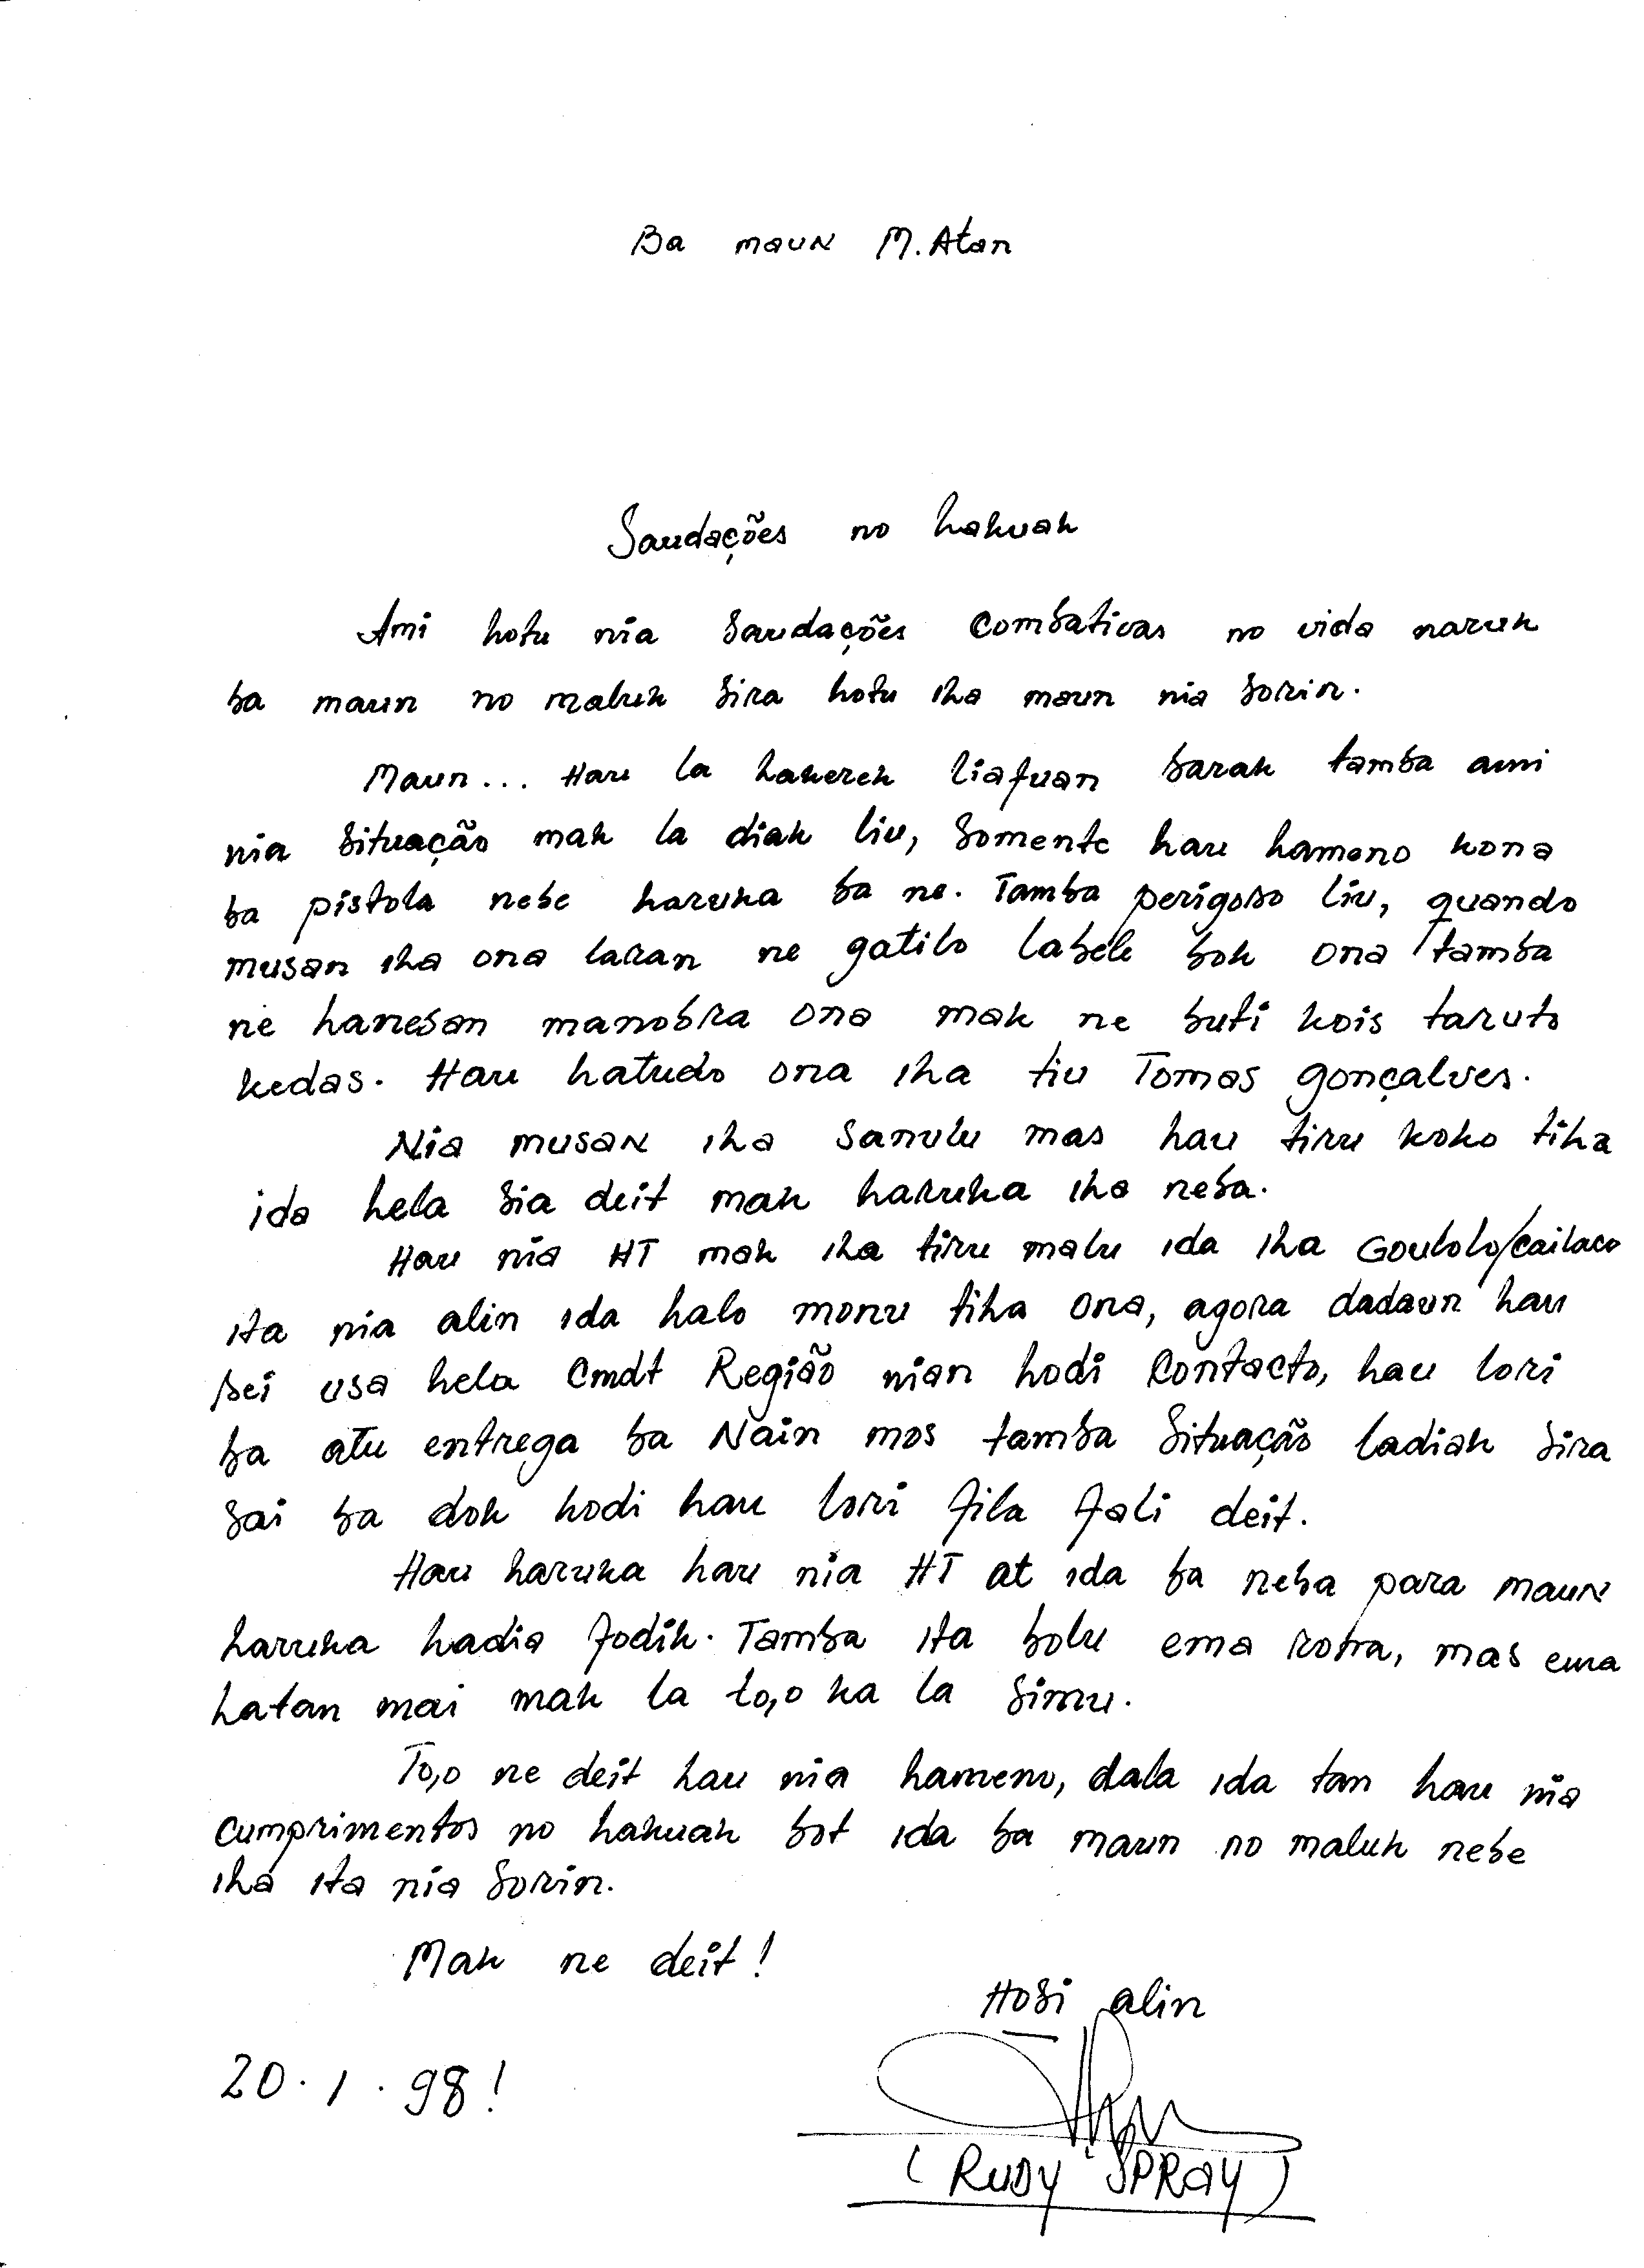 Ba maun M. Atan
Saudações no hakuak
Ami hotu nia Saudações Combativas no vida naruk
ba maun no maluk Sira hotu iha maun nia Sorin.
Maun... Hau la hakerek liafuan barak tamba ami
nia Situação mak la diak liu, Somente hau hameno kona
ba pistola nebe haruka ba ne. Tamba perigoso liu, quando
musan iha ona laran ne gatilo labele bok ona tamba
ne hanesan manobra ona mak ne buti kois taruto
kedas. Hau hatudo ona iha tiu Tomas gonçalves.
Nia musan iha Sanulu mas hau tiru koko tiha
ida hela Sia deit mak haruka iha neba.
Hau nia HT mak iha tiru malu ida iha Goulolo/Cailaco
ita nia alin ida halo monu tiha ona, agora dadaun hau
sei usa hela Cmdt Região nian hodi Contacto, hau lori
ba atu entrega ba Nain mos tamba Situação ladiak Sira
Sai ba dok hodi hau lori fila fali deit.
Hau haruka hau nia HT at ida ba neba para maun
haruka hadia fodik. Tamba ita bolu ema rona, mas ema
hatan mai mak la to,o ka la Simu.
To,o ne deit hau nia hameno, dala ida tan hau nia
Cumprimentos no hakuak bot ida ba maun no maluk nebe
iha ita nia Sorin.
Mak ne deit!
Hosi alin
20.1.98!
(RUDY SPRAY)